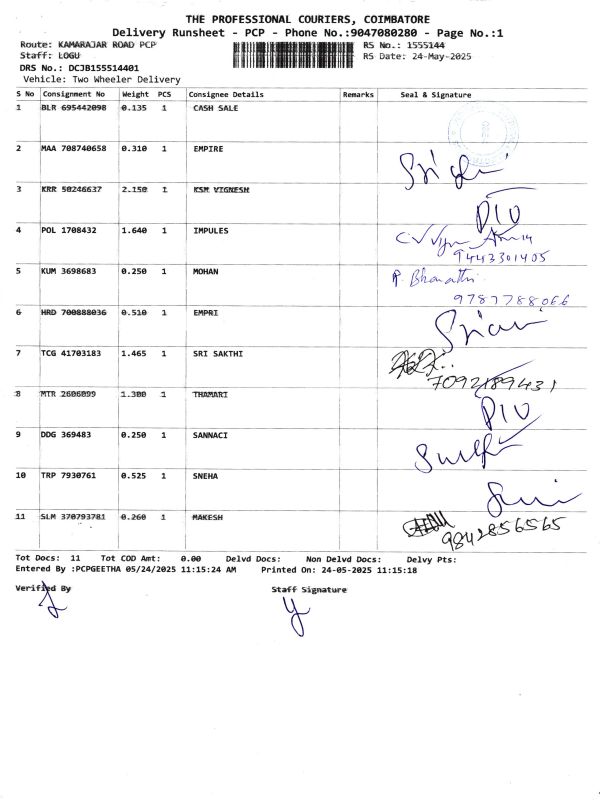 THE PROFESSIONAL COURIERS, COIMBATORE
Delivery Runsheet - PCP - Phone No.:9047080280 - Page No.:1
Route: KAMARAJAR ROAD PCP RS No.: 1555144
Staff: LOGU RS Date: 24-May-2025
DRS No.: DCJB155514401
Vehicle: Two Wheeler Delivery
S No Consignment No Weight PCS Consignee Details Remarks Seal & Signature
1 BLR 695442098 0.135 1 CASH SALE
2 MAA 708740658 0.310 1 EMPIRE
3 KRR 50246637 2.150 1 KSM VIGNESH
4 POL 1708432 1.640 1 IMPULES
9443301405
5 KUM 3698683 0.250 1 MOHAN R. Bharathi
9787788066
6 HRD 700888036 0.510 1 EMPRI
7 TCG 41703183 1.465 1 SRI SAKTHI
7092189431
8 MTR 2606099 1.300 1 THAMARI
9 DDG 369483 0.250 1 SANNACI
10 TRP 7930761 0.525 1 SNEHA
11 SLM 370793781 0.260 1 MAKESH
9842856565
Tot Docs: 11 Tot COD Amt: 0.00 Delvd Docs: Non Delvd Docs: Delvy Pts:
Entered By :PCPGEETHA 05/24/2025 11:15:24 AM Printed On: 24-05-2025 11:15:18
Verified By Staff Signature